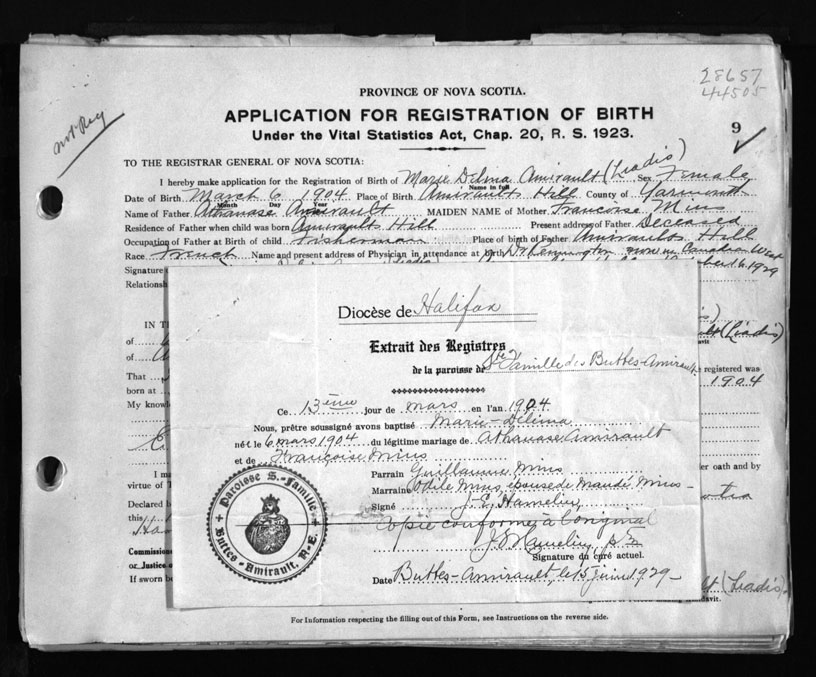 28657
44505
Not Reg
PROVINCE OF NOVA SCOTIA.
APPLICATION FOR REGISTRATION OF BIRTH
Under the Vital Statistics Act, Chap. 20, R. S. 1923.
9
TO THE REGISTRAR GENERAL OF NOVA SCOTIA:
I hereby make application for the Registration of Birth of Marie Delma Amirault (Liadis) Sex Female
Name in full
Date of Birth March 6 1904 Place of Birth Amiraults Hill County of Yarmouth
Month Day Year
Name of Father Athanase Amirault MAIDEN NAME of Mother Francoise Mius
Residence of Father when child was born Amiraults Hill Present address of Father Deceased
Occupation of Father at Birth of child Fisherman Place of birth of Father Amiraults Hill
Race French Name and present address of Physician in attendance at birth Dr now in Canadian West
Signature 16, 1929
Relations
IN T
of
of
That registered was
born at 1904
My know
I ma er oath and by
virtue of
Declared b
this
Commission
or Justice o
If sworn b (Liadis)
Diocèse de Halifax
Extrait des Registres
de la paroisse de Ste Famille des Buttes-Amirault
Ce 13ième jour de mars en l'an 1904
Nous, prêtre soussigné avons baptisé Marie-Délima
né le 6 mars 1904 du légitime mariage de Athanase Amirault
et de Francoise Mius
Parrain Guillaume Mius
Marraine Odile Mius, épouse de Mandé Mius
Signé J. E. Hamelin,
Copie conforme à l'original
J. Hamelin, ptre
Signature du curé actuel.
Date Buttes-Amirault, le 15 juin 1929
Paroisse S.-Famille
Buttes-Amirault, N.-E.
For Information respecting the filling out of this Form, see Instructions on the reverse side.